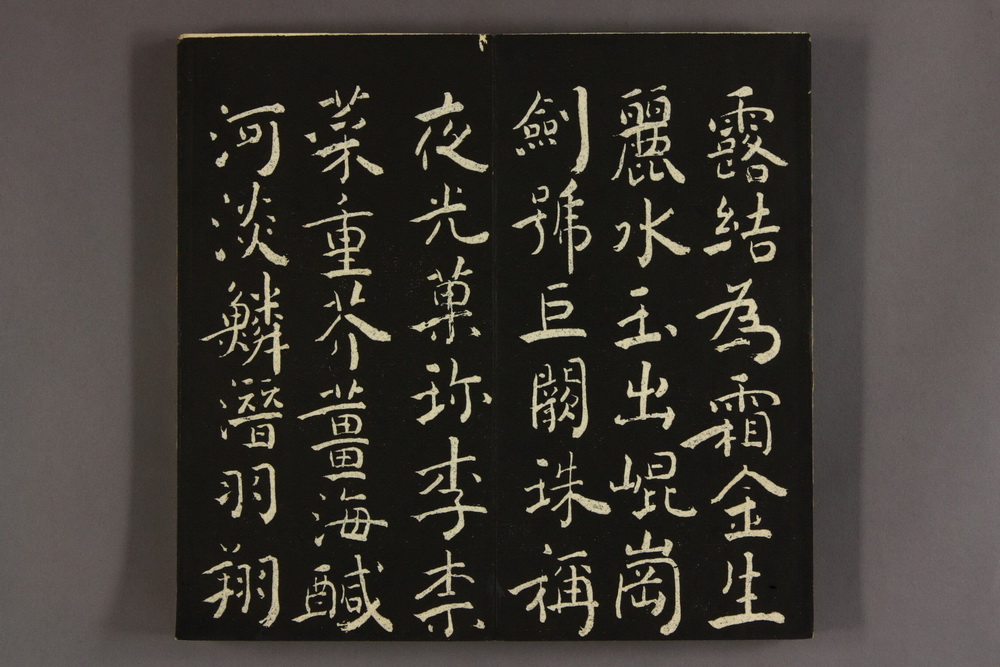 露結為霜金生
麗水玉出崐崗
劍號巨闕珠稱
夜光菓珎李柰
菜重芥薑海醎
河淡鱗潛羽翔